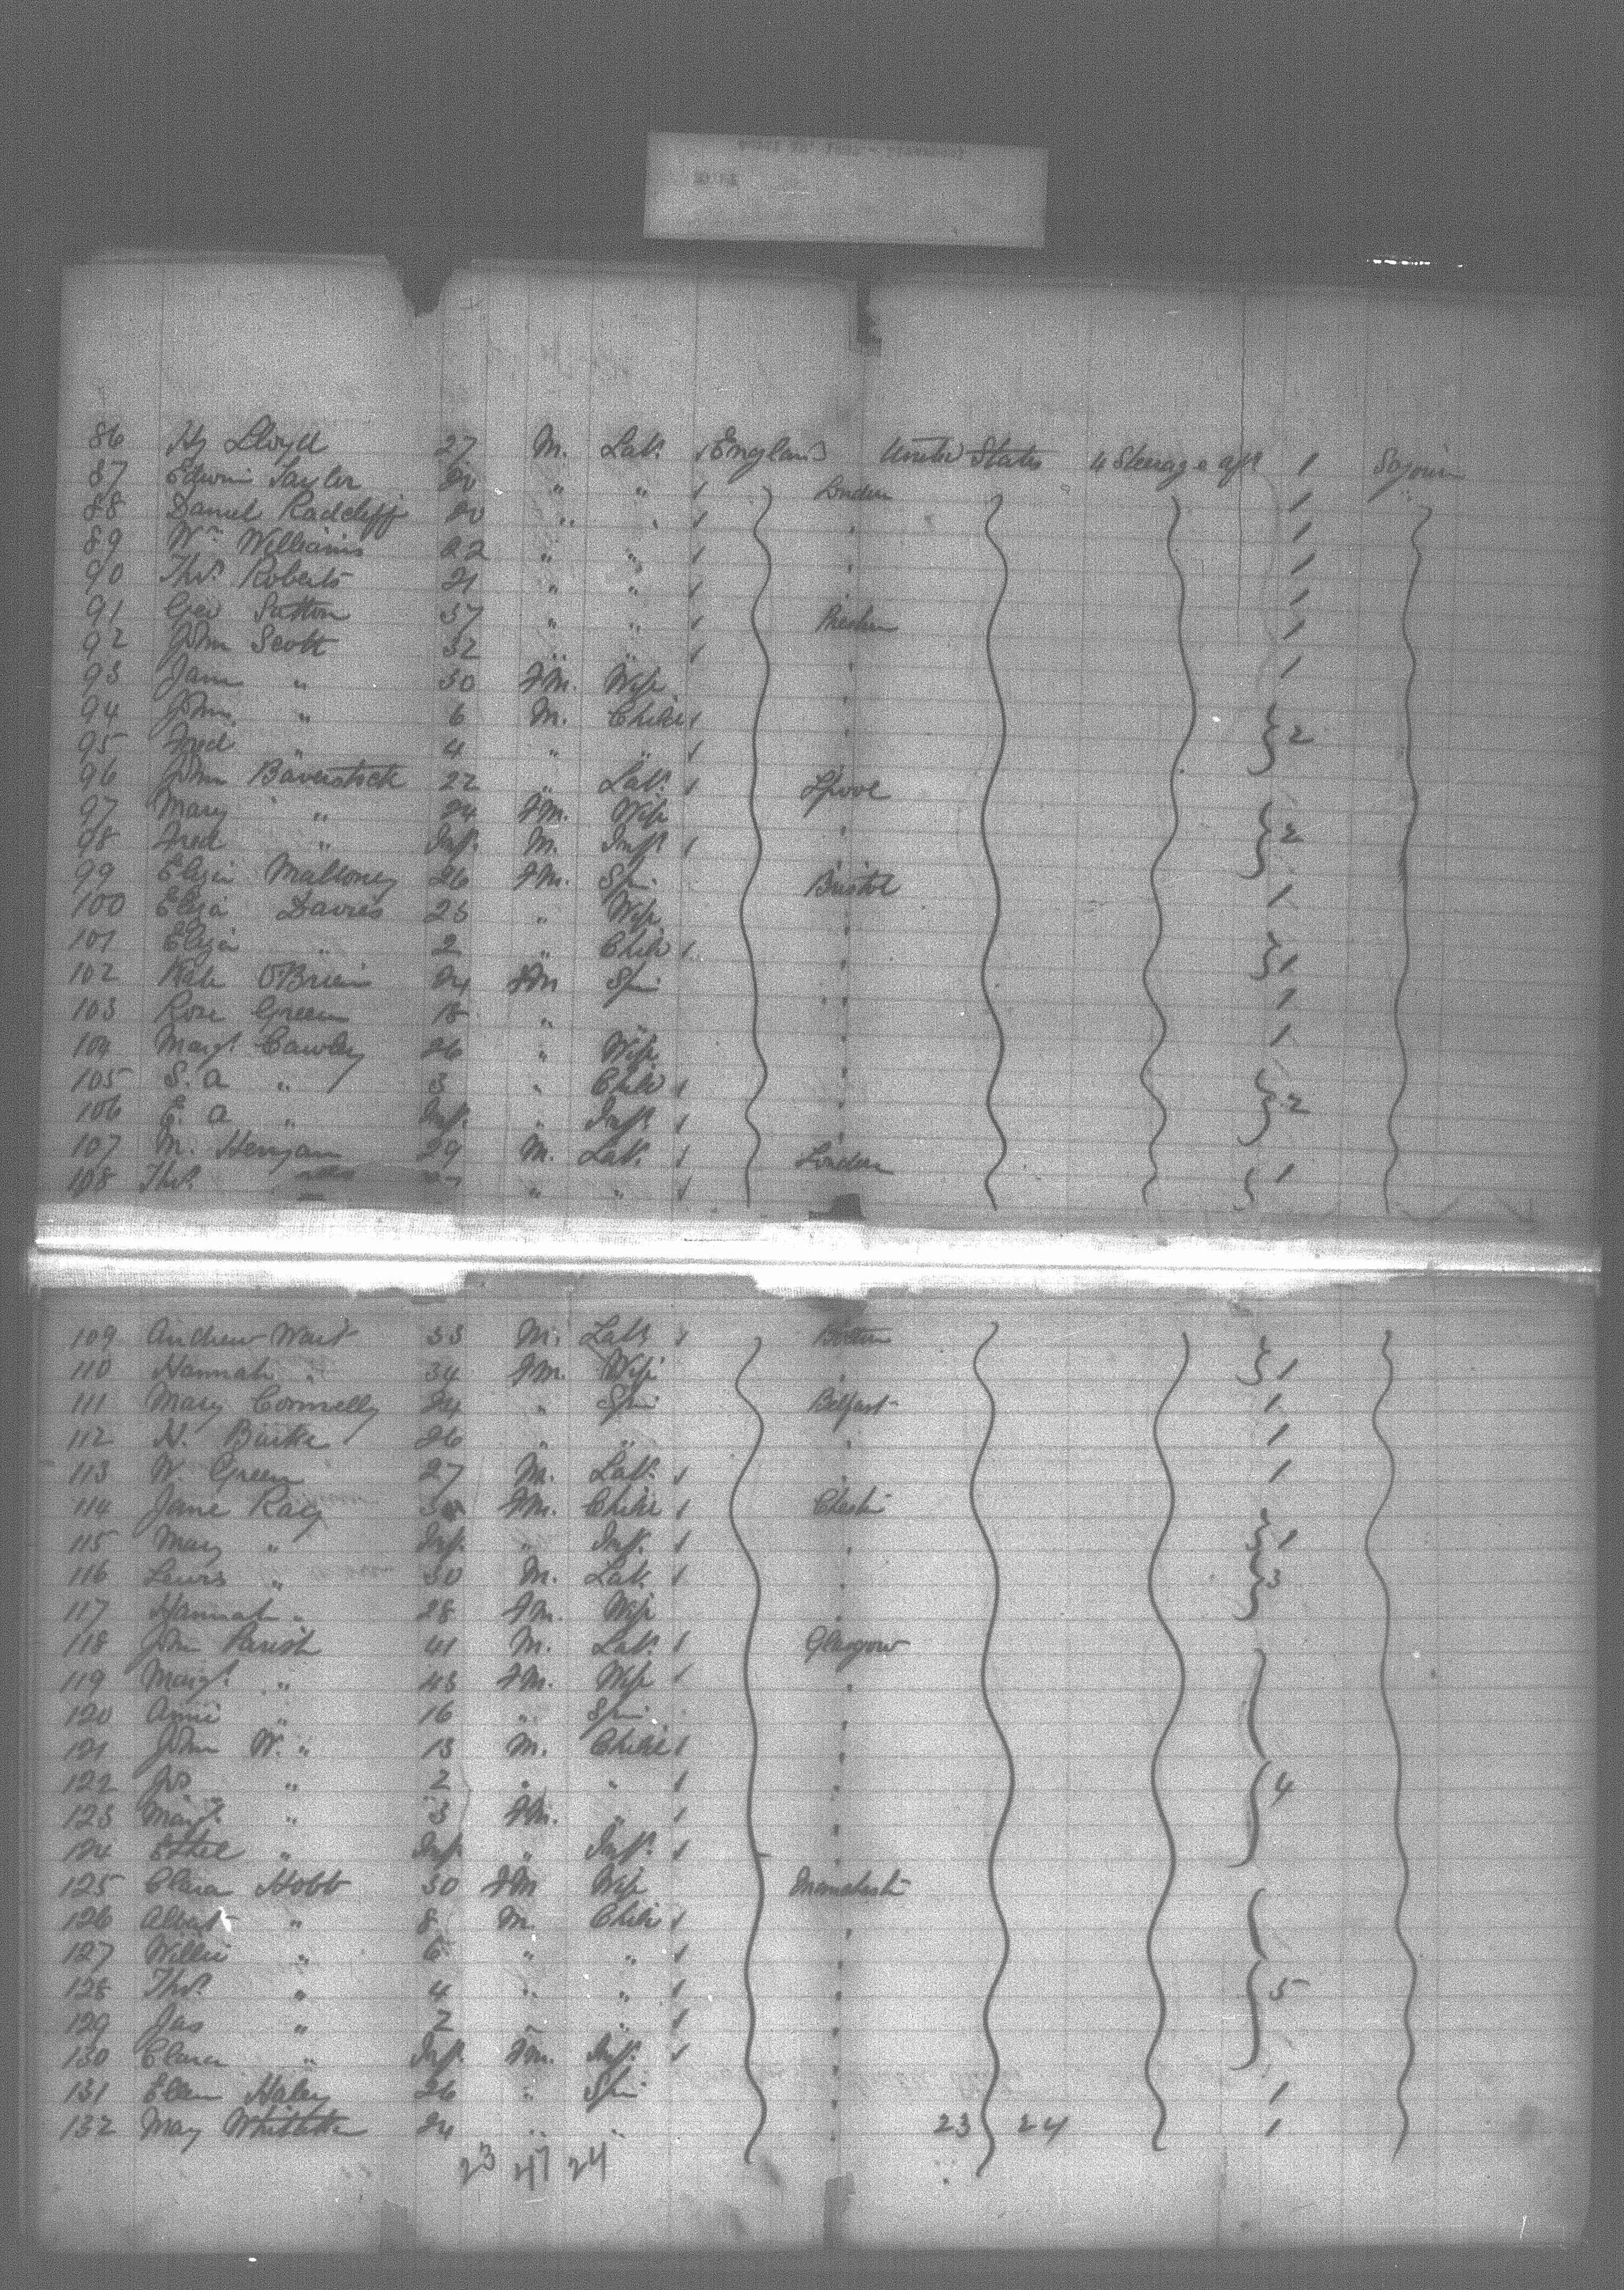 86 Hy Lloyd 27 M. Lab. England United States 4 Steerage aft 1 Sojourn
87 Edwin Taylor 20 " " London 1
88 Daniel Radcliff 20 " " " 1
89 Wm Williams 22 " " " 1
90 Thos. Roberts 21 " " " 1
91 Geo Sutton 37 " " Preston 1
92 John Scott 32 " " " 1
93 Jane " 30 Fm. Wife "
94 John " 6 M. Child " 2
95 Fred " 4 " " "
96 John Baverstock 22 " Lab. Lpool
97 Mary " 24 Fm. Wife " 2
98 Fred " Inf. M. Inf. "
99 Eliza Malloney 26 Fm. Spin Bristol 1
100 Eliza Davies 25 " Wife "
101 Eliza " 2 " Child " 1
102 Kate OBrien 24 Fm Spin " 1
103 Rose Green 18 " " " 1
104 Margt. Cawley 26 " Wife "
105 S. a " 3 " Child " 2
106 E. a " Inf. " Inf. "
107 M. 29 M. Lab. London
108 Thos. " " 1
109 Andrew Wait 33 M. Lab. Boston
110 Hannah " 34 Fm. Wife " 1
111 Mary Connelly 24 " Spin Belfast 1
112 H. Burke 26 " " " 1
113 W. Green 27 M. Lab. " 1
114 Jane Fm. Child Chester
115 May " Inf. " Inf. " 1
116 Lewis " 30 M. Lab. " 3
117 Hannah " 28 Fm. Wife "
118 Jon Parish 41 M. Lab. Glasgow
119 Margt. " 43 Fm. Wife "
120 Annie " 16 " Spin "
121 John W. " 13 M. Child "
122 Jos " 2 " " " 4
123 Margt. " 3 Fm. " "
124 Ethel " Inf. " Inf. "
125 Clara Hobb 30 Fm Wife Manchester
126 Albert " 8 M. Child "
127 Willie " 6 " " "
128 Thos. " 4 " " " 5
129 Jas " 2 " " "
130 Clara " Inf. Fm. Inf. "
131 Ellen Haley 26 " Spin " 1
132 May 24 " " " 23 24 1
23 47 24